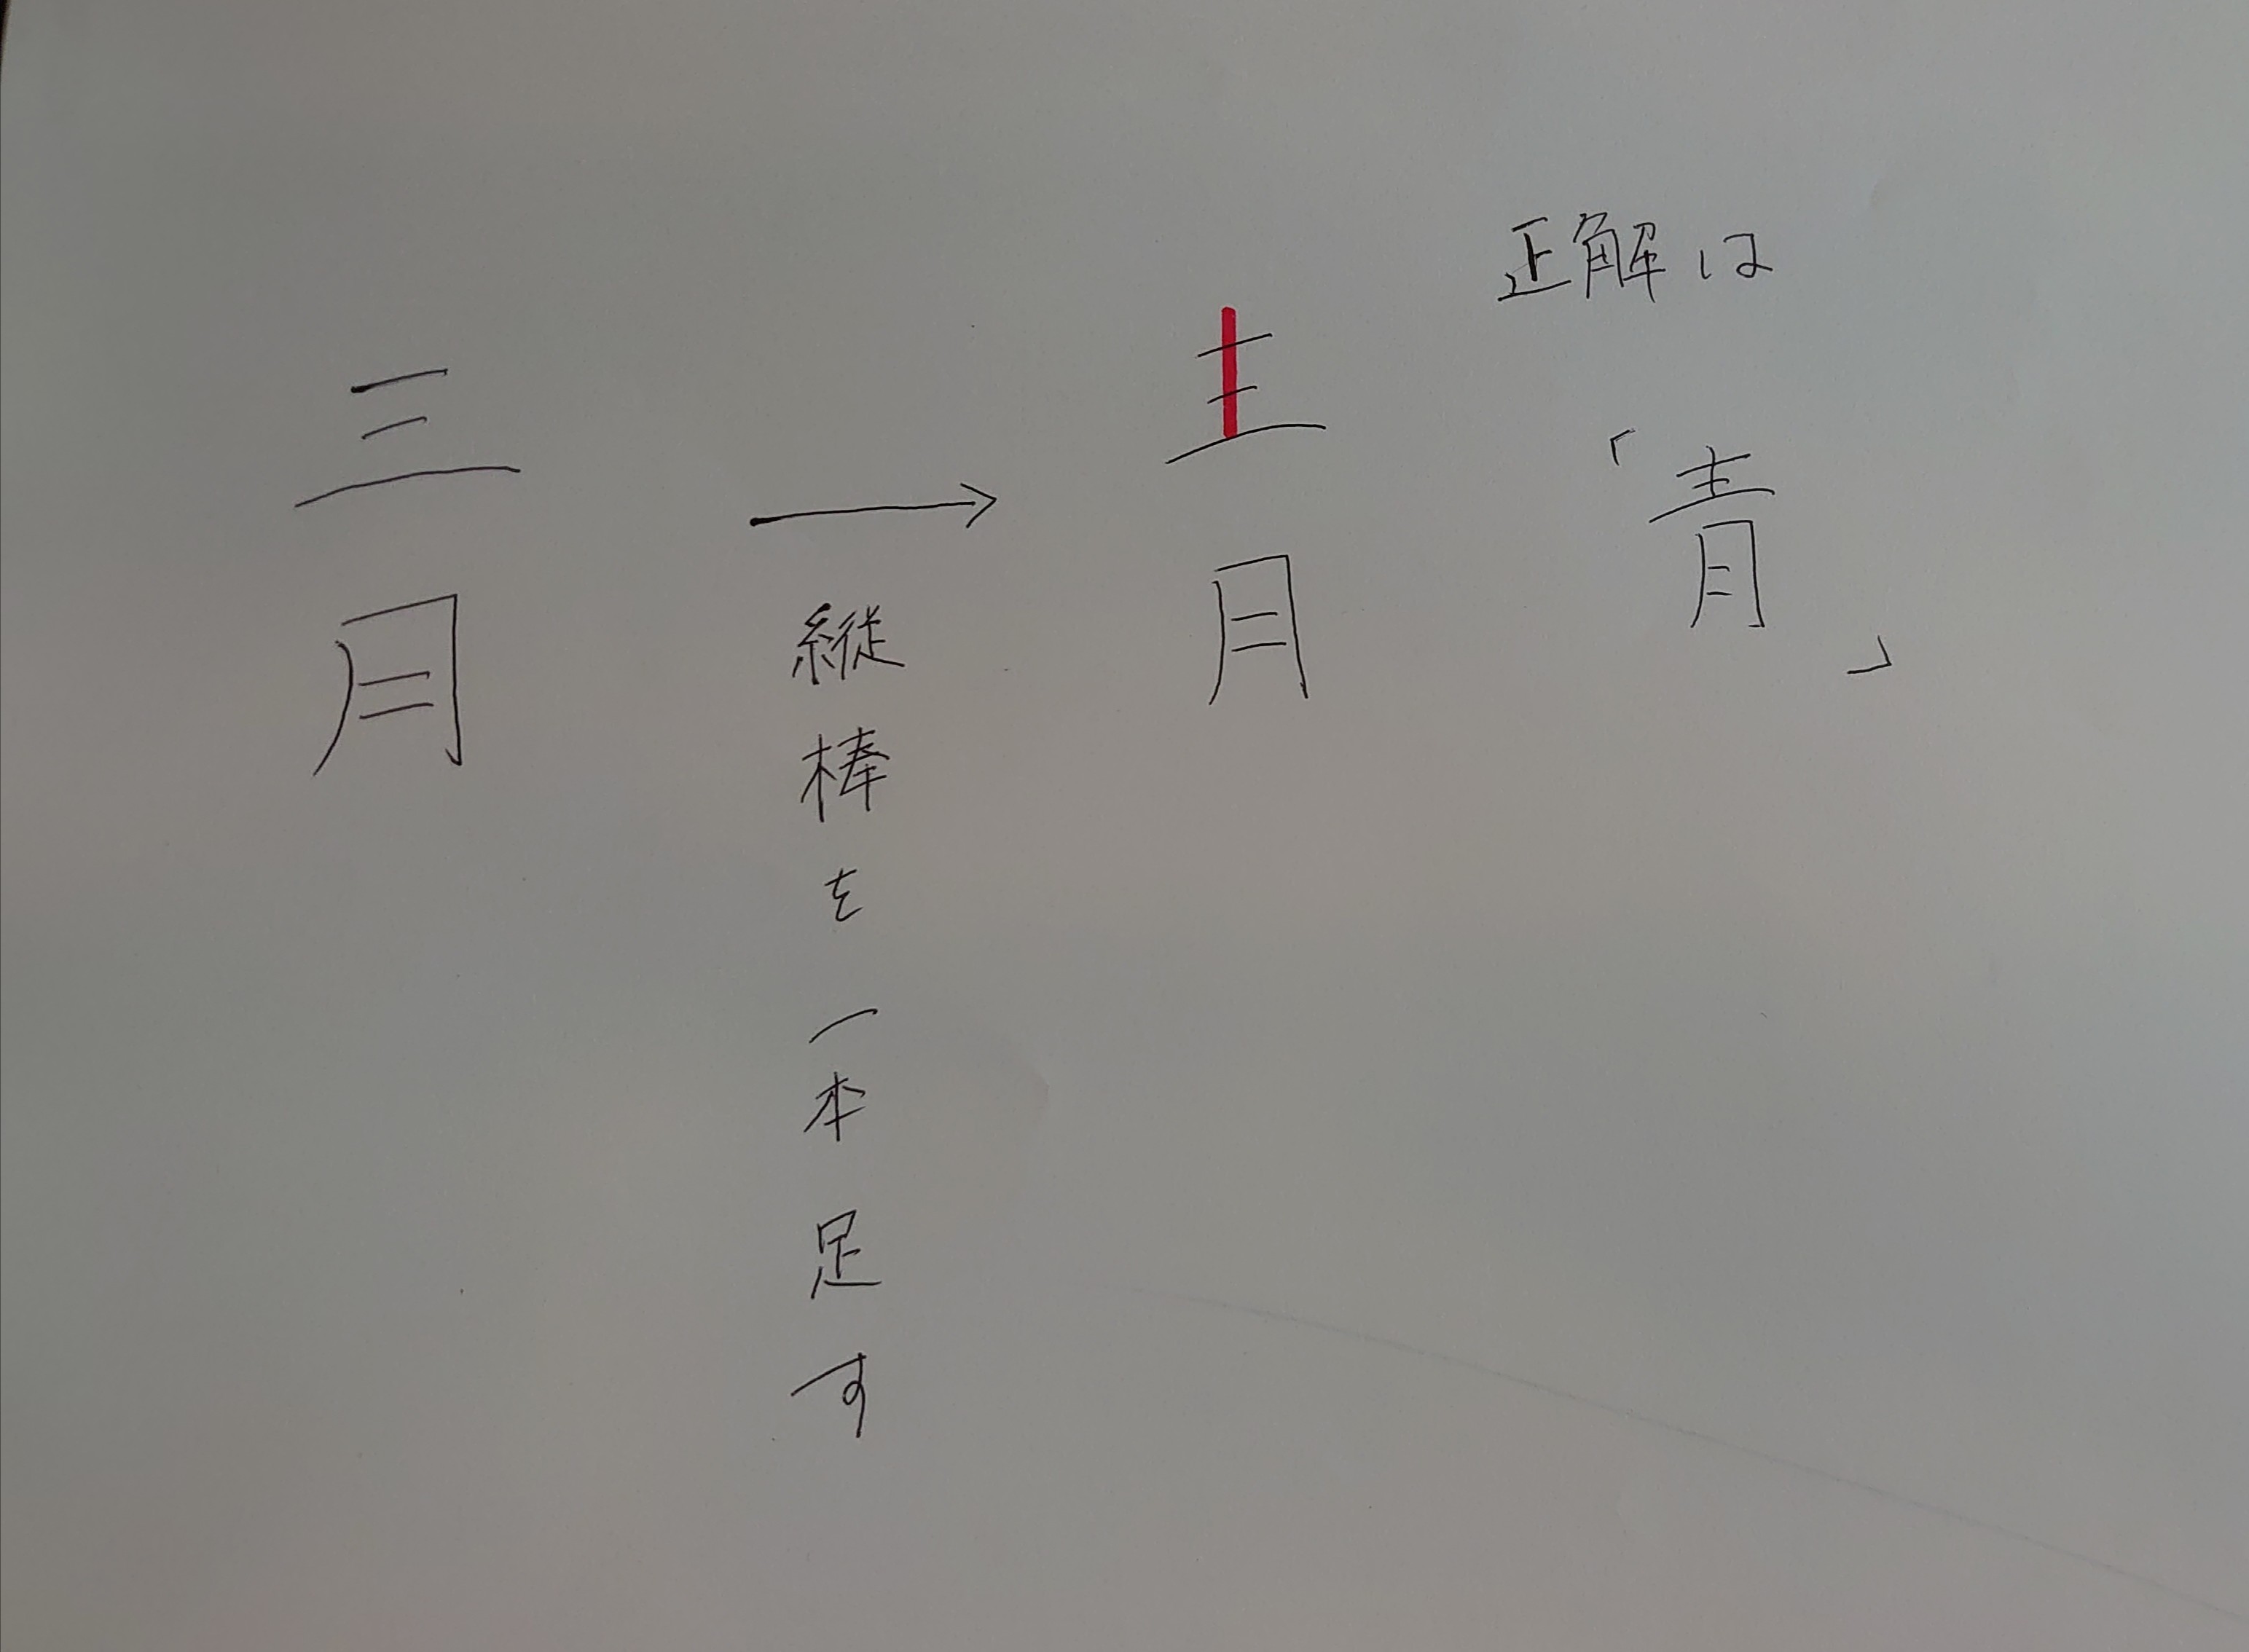 三月
→
縦棒を一本足す
龶月
正解は
「青」